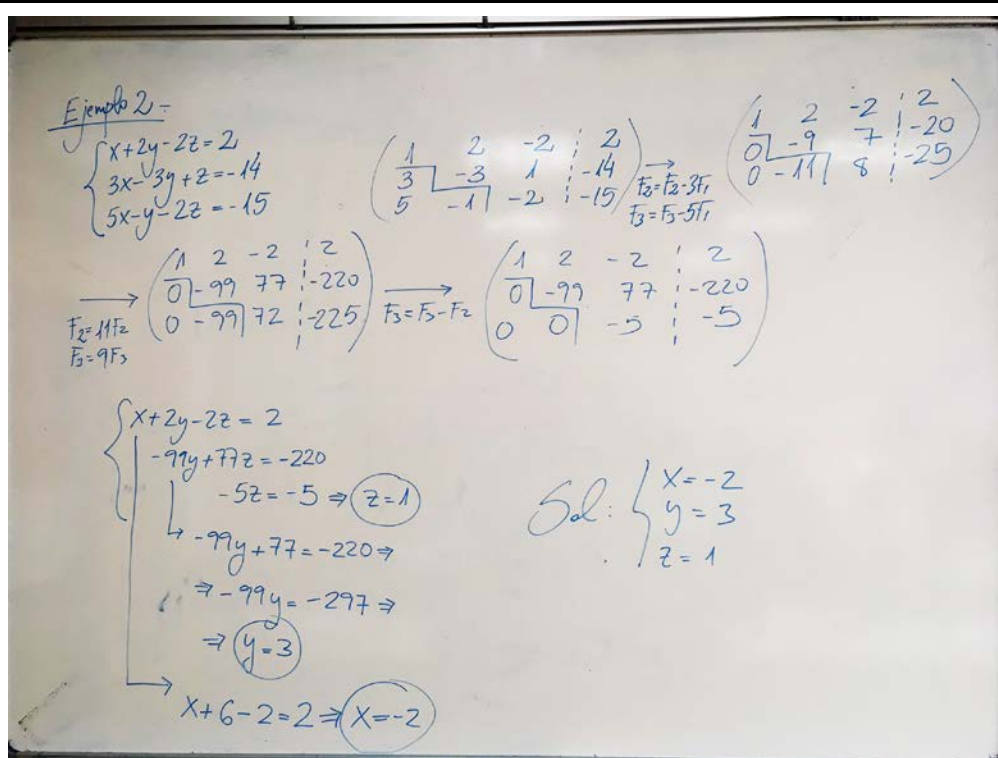 Ejemplo 2.-
x+2y-2z=2
3x-3y+z=-14
5x-y-2z=-15
1 2 -2 2
3 -3 1 -14
5 -1 -2 -15
F2=F2-3F1
F3=F3-5F1
1 2 -2 2
0 -9 7 -20
0 -11 8 -25
F2=11F2
F3=9F3
1 2 -2 2
0 -99 77 -220
0 -99 72 -225
F3=F3-F2
1 2 -2 2
0 -99 77 -220
0 0 -5 -5
x+2y-2z=2
-99y+77z=-220
-5z=-5 ⇒ z=1
-99y+77=-220 ⇒
⇒ -99y=-297 ⇒
⇒ y=3
x+6-2=2 ⇒ x=-2
Sol: x=-2
y=3
z=1